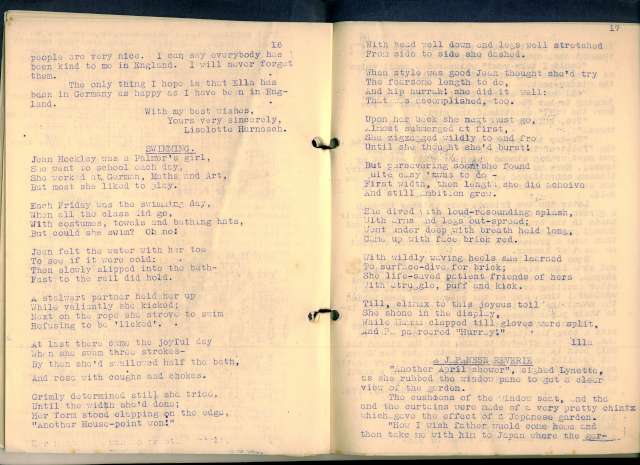 16
people are very nice. I can say everybody has
been kind to me in England. I will never forget
them.
The only thing I hope is that Ella has
been in Germany as happy as I have been in Eng-
land.
With my best wishes,
Yours very sincerely,
Liselotte Harnasch.
SWIMMING.
Jean Hockley was a Palmer's girl,
She went to school each day,
She worked at German, Maths and Art,
But most she liked to play.
Each Friday was the swimming day,
When all the class did go,
With costumes, towels and bathing hats,
But could she swim? Oh no!
Jean felt the water with her toe
To see if it were cold:
Then slowly slipped into the bath-
Fast to the rail did hold.
A stalwart partner held her up
While valiantly she kicked;
Next on the rope she strove to swim
Refusing to be 'licked'.
At last there came the joyful day
When she swam three strokes-
By then she'd swallowed half the bath,
And rose with coughs and chokes.
Grimly determined still she tried,
Until the width she'd done;
Her form stood clapping on the edge,
"Another House-point won!"
17
With head well down and legs well stretched
From side to side she dashed.
When style was good Jean thought she'd try
The fearsome length to do,
And hip hurrah! she did it well:
That was accomplished, too.
Upon her back she next must go,
Almost submerged at first,
She zigzagged wildly to and fro
Until she thought she'd burst!
But persevering soon she found
Quite easy 'twas to do -
First width, then length she did acheive
And still ambition grew.
She dived with loud-resounding splash,
With arms and legs out-spread;
Went under deep with breath held long,
Came up with face brick red.
With wildly waving heels she learned
To surface-dive for brick;
She life-saved patient friends of hers
With struggle, puff and kick.
Till, climax to this joyous toil
She shone in the display,
While clapped till gloves were split,
And roared "Hurray!"
A JAPANESE REVERIE
"Another April shower", sighed Lynette,
as she rubbed the window pane to get a clear
view of the garden.
The cushions of the window seat, and the
and the curtains were made of a very pretty chintz
which gave the effect of a Japanese garden.
"How I wish father would come home and
then take me with him to Japan where the gar-